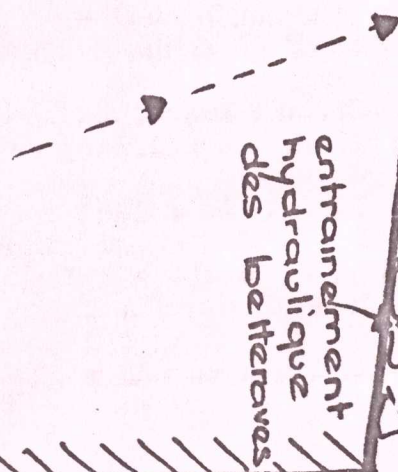 entrainement
hydraulique
des betteraves